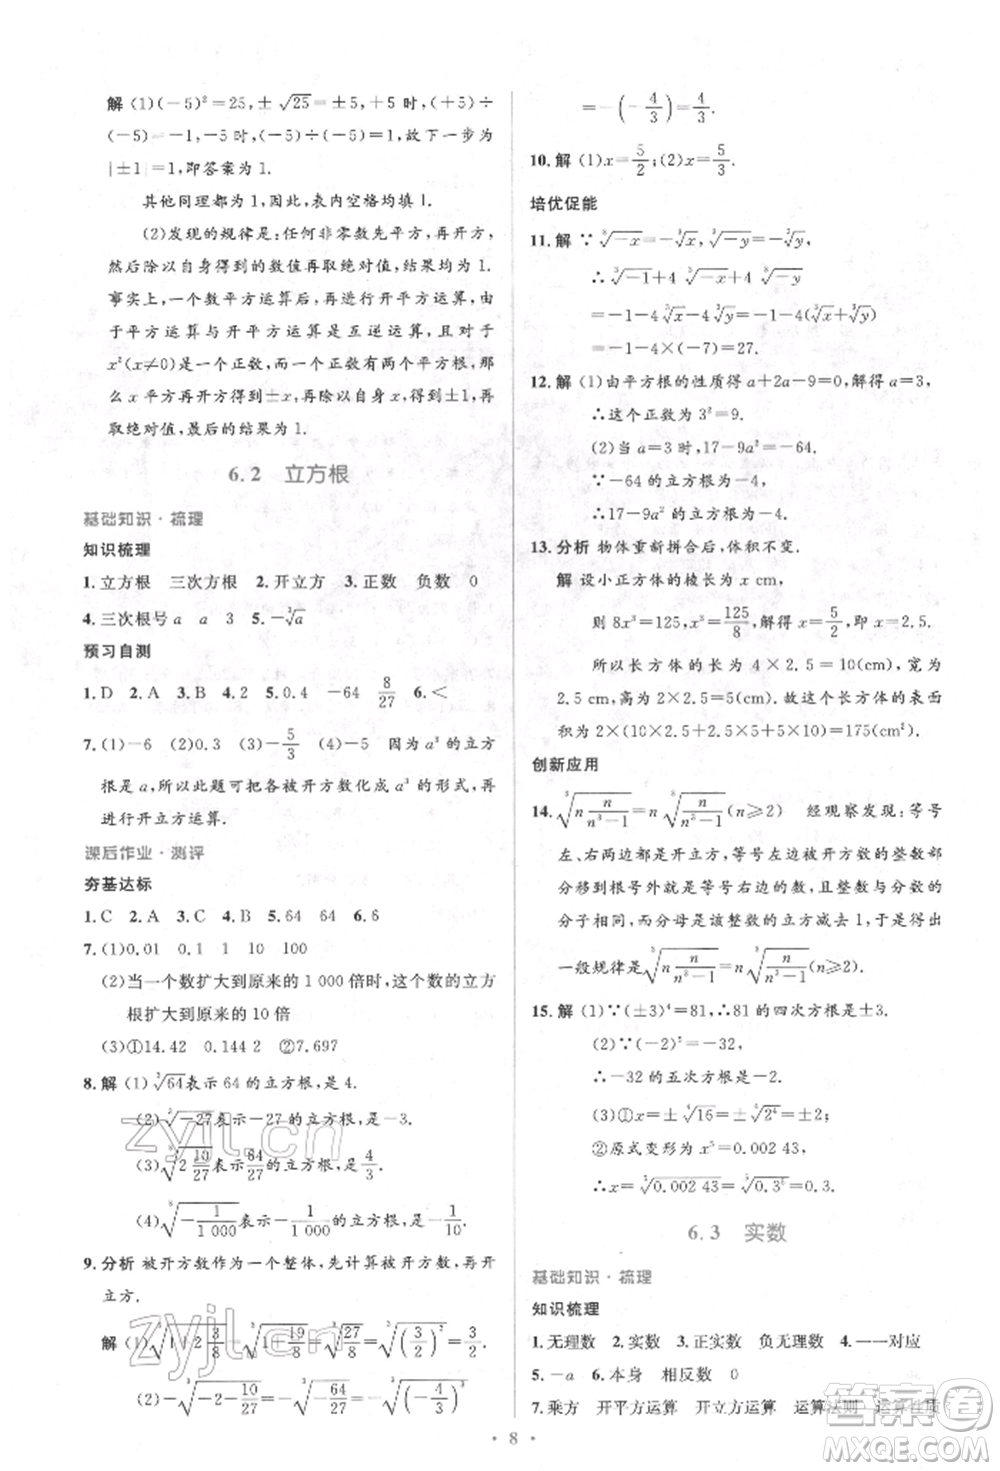 解 (1)(－5)²＝25,±√25＝±5,+5时,(+5)÷
(－5)＝－1,－5时,(－5)÷(－5)＝1,故下一步为
|±1|＝1,即答案为1.
其他同理都为1,因此,表内空格均填1.
(2)发现的规律是:任何非零数先平方,再开方,
然后除以自身得到的数值再取绝对值,结果均为1.
事实上,一个数平方运算后,再进行开平方运算,由
于平方运算与开平方运算是互逆运算,而且对于
x²(x≠0)是一个正数,而一个正数有两个平方根,那
么x平方再开方得到±x,再除以自身得到±1,再
取绝对值,最后的结果为1.
6.2 立方根
基础知识·梳理
知识梳理
1.立方根 三次方根 2.开立方 3.正数 负数 0
4.三次根号a a 3 5.－∛a
预习自测
1.D 2.A 3.B 4.2 5.0.4 －64 8/27 6.＜
7.(1)－6 (2)0.3 (3)－5/3 (4)－5 因为a³的立方
根是a,所以此题可把各被开方数化成a³的形式,再
进行开立方运算.
课后作业·测评
夯基达标
1.C 2.A 3.C 4.B 5.64 64 6.6
7.(1)0.01 0.1 1 10 100
(2)当一个数扩大到原来的1 000倍时,这个数的立方
根扩大到原来的10倍
(3)①14.42 0.144 2 ②7.697
8.解 (1)∛64表示64的立方根,是4.
(2)∛－27表示－27的立方根,是－3.
表示64/27的立方根,是4/3.
(4)∛(－1/1 000)表示－1/1 000的立方根,是－1/10.
9.分析 被开方数作为一个整体,先计算被开方数,再开
立方.
＝－(－4/3)＝4/3.
10.解 (1)x＝5/2;(2)x＝5/3.
培优促能
11.解 ∵∛－x＝－∛x,∛－y＝－∛y,
∴∛－1+4∛－x+4∛－y
＝－1－4∛x－4∛y＝－1－4(∛x+∛y)
＝－1－4×(－7)＝27.
12.解 (1)由平方根的性质得a+2a－9＝0,解得a＝3,
∴这个正数为3²＝9.
(2)当a＝3时,17－9a²＝－64,
∵－64的立方根为－4,
∴17－9a²的立方根为－4.
13.分析 物体重新拼合后,体积不变.
解 设小正方体的棱长为x cm,
则8x³＝5×5×5,x³＝125/8,x＝5/2,即x＝2.5.
所以长方体的长为4×2.5＝10(cm),宽为
2.5 cm,高为2×2.5＝5(cm).故这个长方体的表面
积为2×(10×2.5+2.5×5+10×5)＝175(cm²).
创新应用
14.∛(n n/(n³－1))＝n∛(n/(n³－1))(n≥2) 经观察发现:等号
左、右两边都是开立方,等号左边被开方数的整数部
分移到根号外就是等号右边的数,整数与分数的
分子相同,而分母是该整数的立方减去1,于是得出
一般规律是∛(n n/(n³－1))＝n∛(n/(n³－1))(n≥2).
15.解 (1)∵(±3)⁴＝81,∴81的四次方根是±3.
(2)∵(－2)⁵＝－32,
∴－32的五次方根是－2.
(3)①x＝±⁴√16＝±⁴√2⁴＝±2;
②原式变形为x⁵＝0.002 43,
∴x＝⁵√0.002 43＝⁵√0.3⁵＝0.3.
6.3 实数
基础知识·梳理
知识梳理
1.无理数 2.实数 3.正实数 负无理数 4.一一对应
5.－a 6.本身 相反数 0
7.乘方 开平方运算 开立方运算 运算法则 运算性质
·8·
zyjl.cn
zyjl.cn
答案圈
MXQE.COM